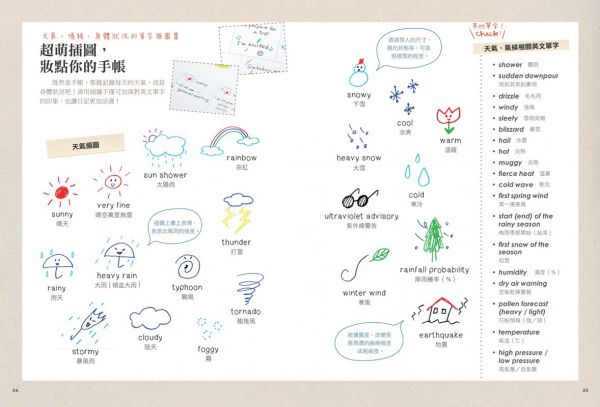 天氣、情緒、身體狀況的單字插圖書
超萌插圖,
妝點你的手帳
既然是手帳,那就記錄每天的天氣,或是
身體狀況吧!善用插圖不僅可加深對英文單字
的印象,也讓日記更加活潑!
a trip
excited
天氣插圖
sunny
晴天
very fine
晴空萬里無雲
sun shower
太陽雨
rainbow
彩虹
插圖上畫上表情,
表現出風雨的強度。
rainy
雨天
heavy rain
大雨(傾盆大雨)
typhoon
颱風
thunder
打雷
tornado
龍捲風
stormy
暴風雨
cloudy
陰天
foggy
霧
透過雪人的尺寸、
融化狀態等,可表
現積雪的程度。
snowy
下雪
cool
涼爽
warm
溫暖
heavy snow
大雪
cold
寒冷
ultraviolet advisory
紫外線警告
rainfall probability
降雨機率(%)
winter wind
寒風
earthquake
地震
根據震度,改變房
屋周遭的曲線幅度
或粗細度。
其他單字!
Check!
天氣、氣候相關英文單字
• shower 驟雨
• sudden downpour
突如其來的豪雨
• drizzle 毛毛雨
• windy 強風
• sleety 雪雨夾雜
• blizzard 暴雪
• hail 冰雹
• hot 炎熱
• muggy 炎熱
• fierce heat 猛暑
• cold wave 寒流
• first spring wind
第一道春風
• start (end) of the
rainy season
梅雨季節開始(結束)
• first snow of the
season
初雪
• humidity 濕度(%)
• dry air warning
空氣乾燥警報
• pollen forecast
(heavy / light)
花粉預報(強/弱)
• temperature
氣溫(℃)
• high pressure /
low pressure
高氣壓/低氣壓